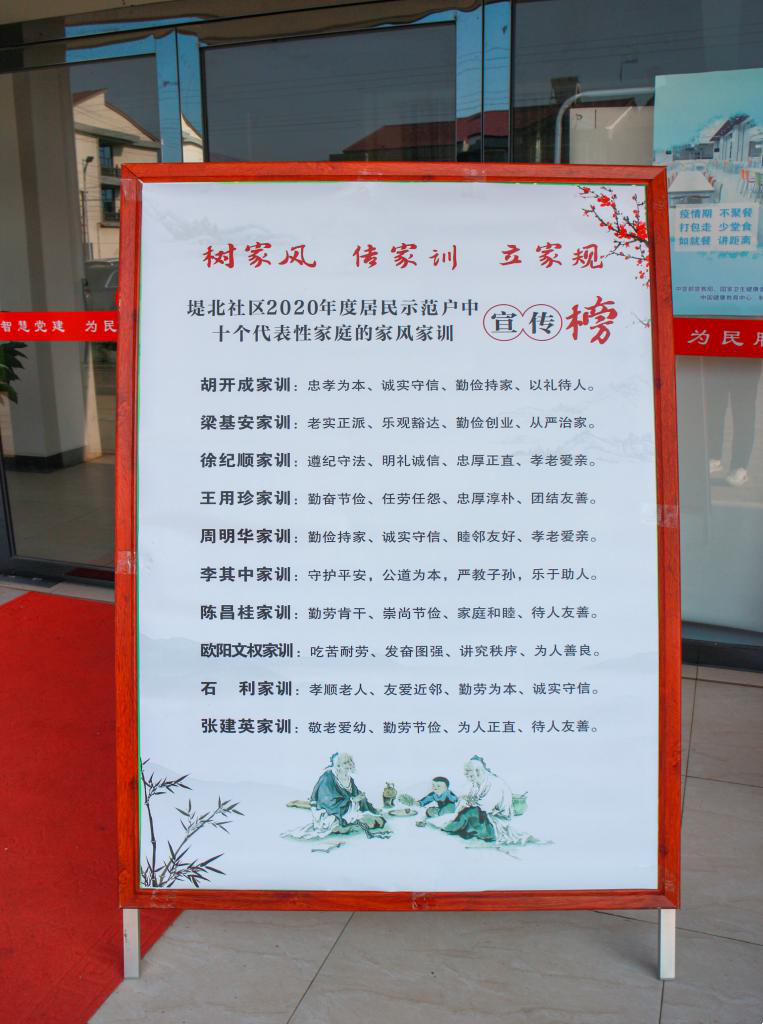 树家风 传家训 立家规
堤北社区2020年度居民示范户中
十个代表性家庭的家风家训
宣传榜
胡开成家训：忠孝为本、诚实守信、勤俭持家、以礼待人。
梁基安家训：老实正派、乐观豁达、勤俭创业、从严治家。
徐纪顺家训：遵纪守法、明礼诚信、忠厚正直、孝老爱亲。
王用珍家训：勤奋节俭、任劳任怨、忠厚淳朴、团结友善。
周明华家训：勤俭持家、诚实守信、睦邻友好、孝老爱亲。
李其中家训：守护平安，公道为本，严教子孙，乐于助人。
陈昌桂家训：勤劳肯干、崇尚节俭、家庭和睦、待人友善。
欧阳文权家训：吃苦耐劳、发奋图强、讲究秩序、为人善良。
石 利家训：孝顺老人、友爱近邻、勤劳为本、诚实守信。
张建英家训：敬老爱幼、勤劳节俭、为人正直、待人友善。
智慧党建 为民
疫情期 不聚餐
打包走 少堂食
如就餐 讲距离
中宣部宣教局、国家卫生健康
中国健康教育中心
为民